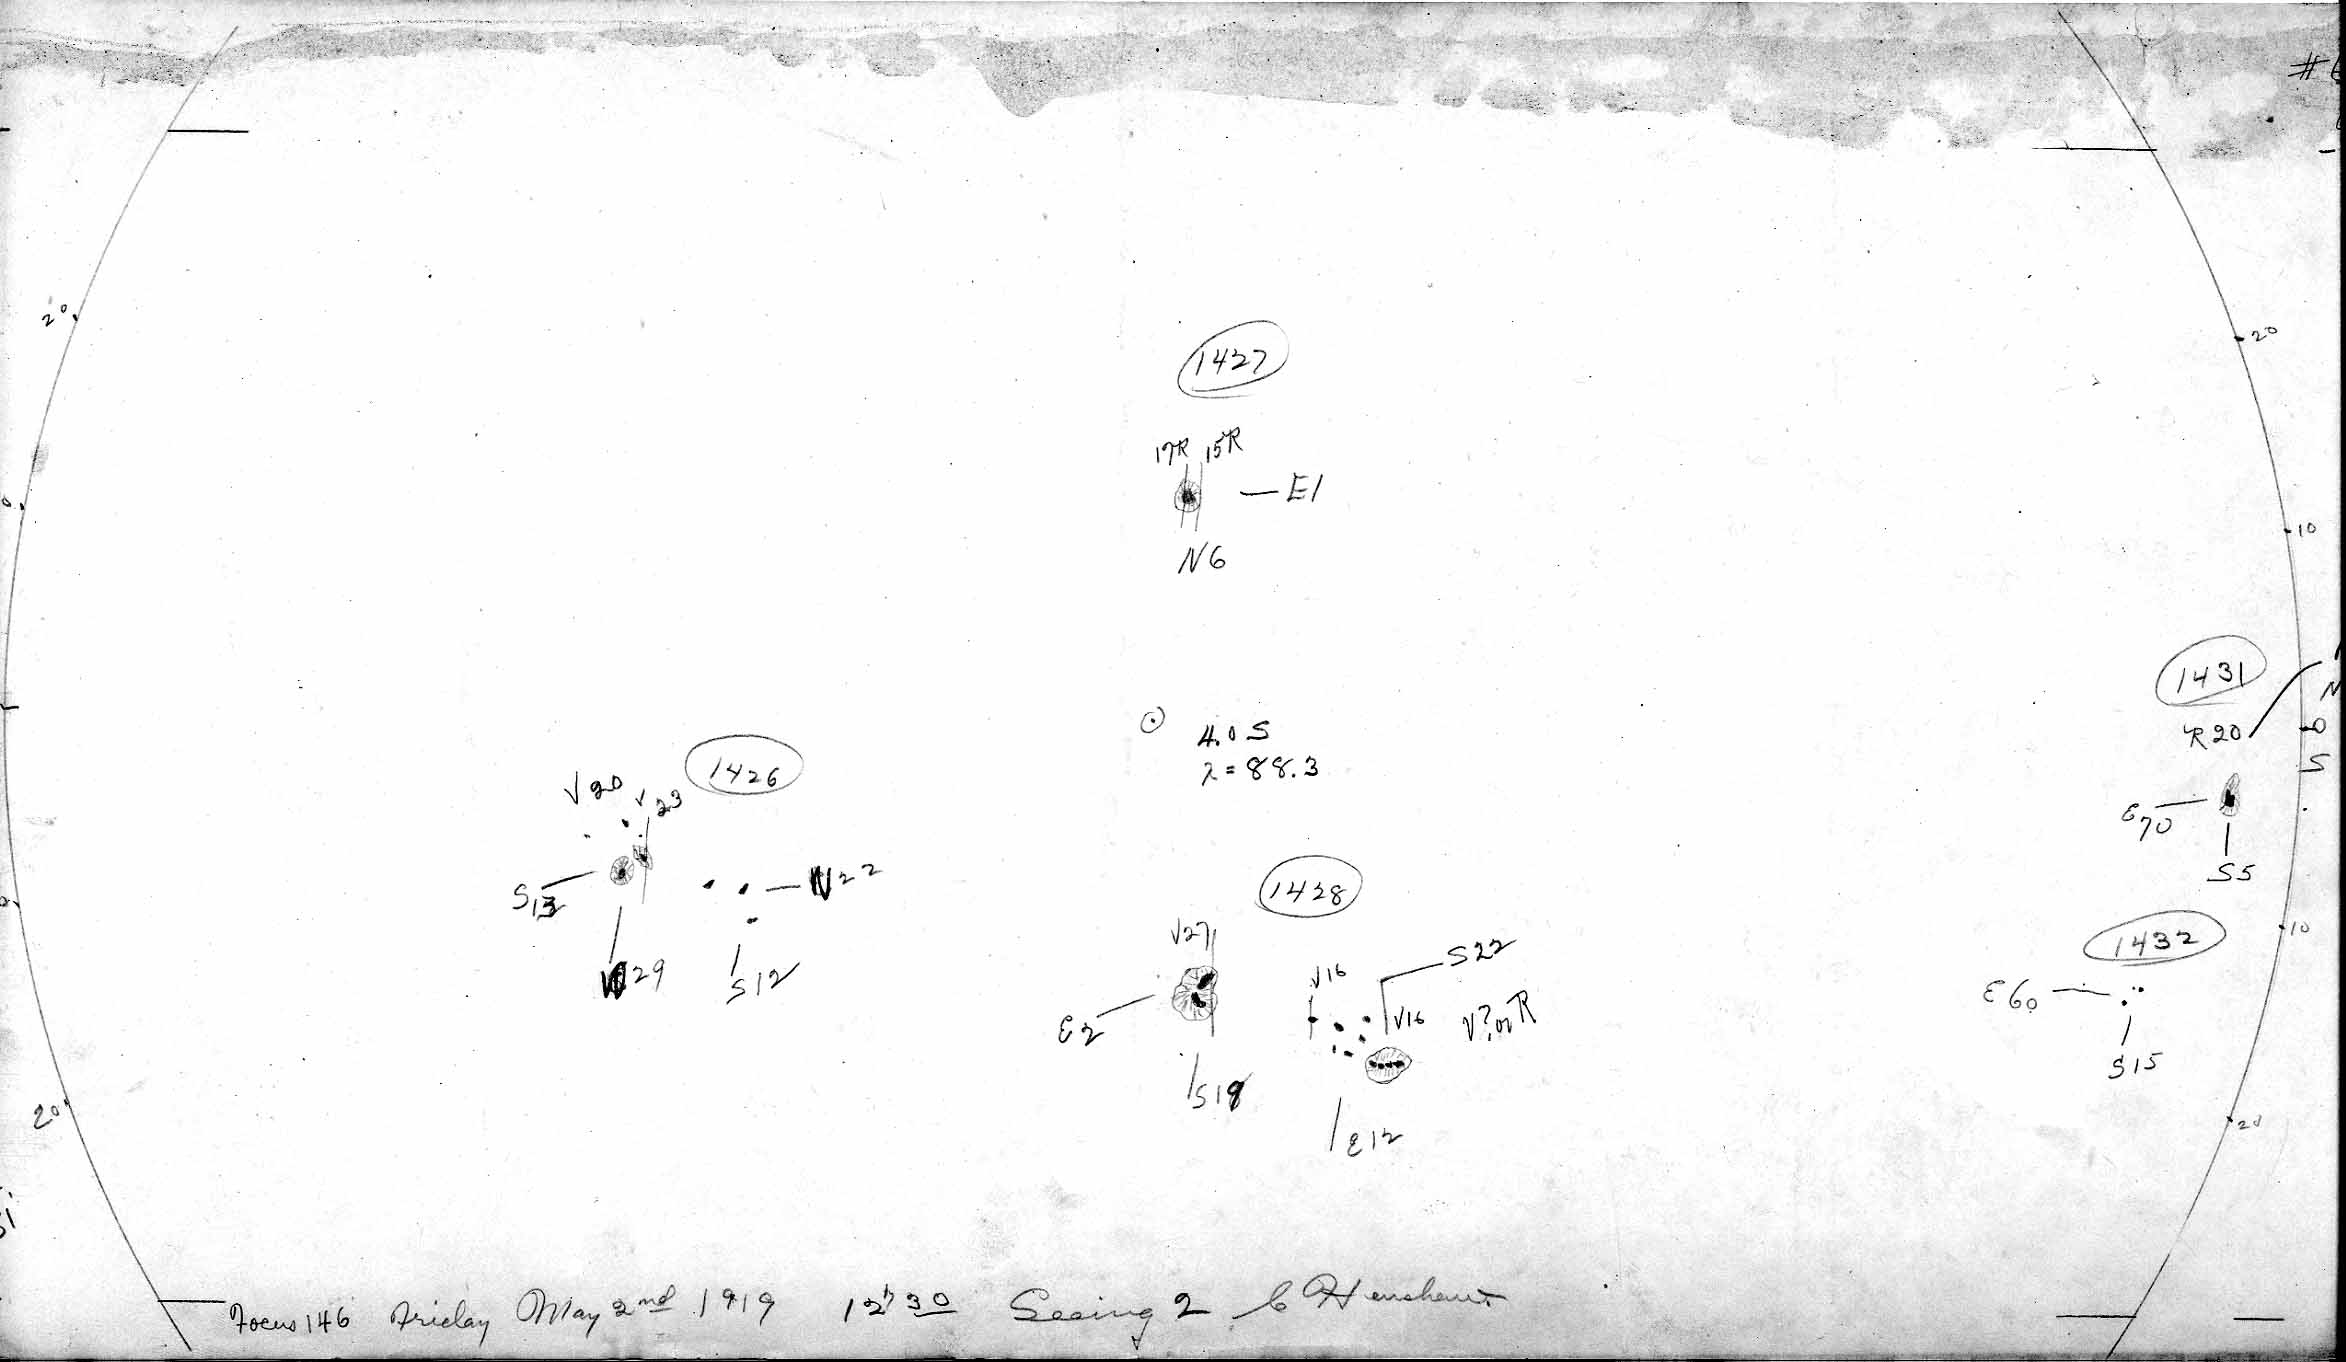 #
20
20
1427
17R 15R
E1
10
N6
1431
N
R20
0
S
4.0 S
λ = 88.3
1426
V20
V23
E70
S5
S13
W22
W29
S12
1428
V27
10
1432
S22
V16
V16
V? or R
E2
E60
S15
S18
E12
20
20
Focus 146 Friday May 2nd 1919 12h 30 Seeing 2